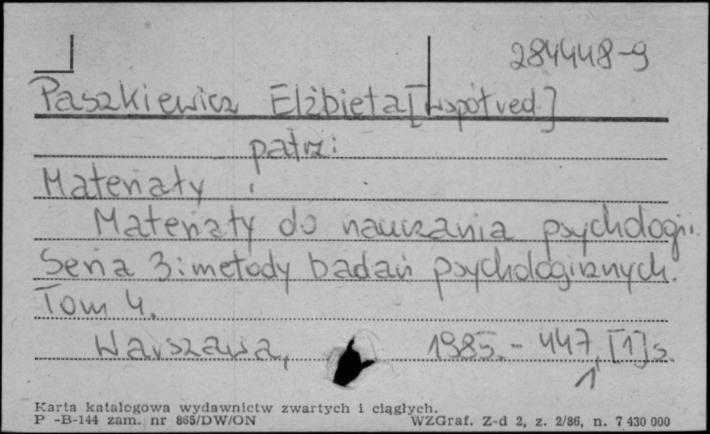 284448-9
Paszkiewicz Elżbieta [współred.]
patrz:
Materiały
Materiały do nauczania psychologii.
Seria 3: metody badań psychologicznych.
Tom 4.
Warszawa, 1985. - 447, [1] s.
Karta katalogowa wydawnictw zwartych i ciągłych.
P -B-144 zam. nr 865/DW/ON WZGraf. Z-d 2, z. 2/86, n. 7 430 000